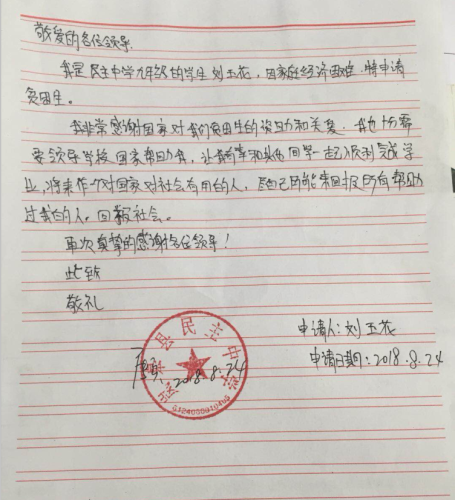 敬爱的各位领导:
我是民主中学九年级的学生刘玉花,因家庭经济困难,特申请
贫困生。
我非常感谢国家对我们贫困生的资助和关爱,我也十分需
要领导学校国家帮助我,让我可以和其他同学一起顺利完成学
业,将来作个对国家对社会有用的人,尽自己的能力来回报所有帮助
过我的人。回报社会。
再次真挚的感谢各位领导!
此致
敬礼
县民主中学
申请人:刘玉花
2018.8.24
申请日期:2018.8.24